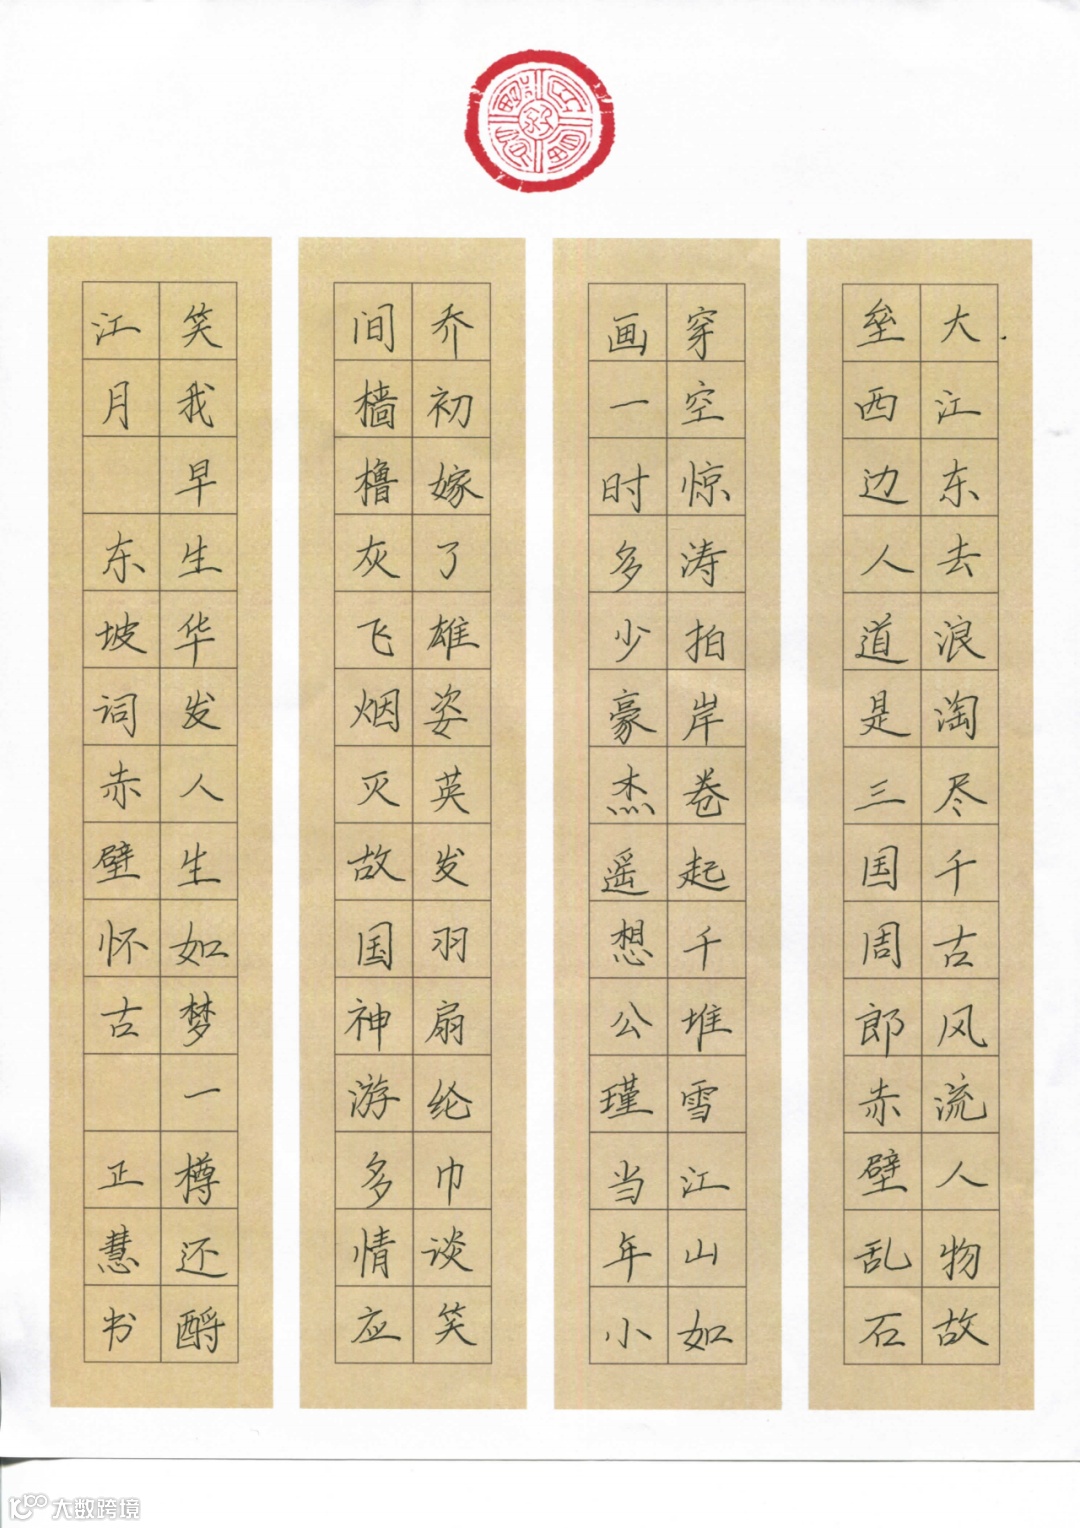 大江东去浪淘尽千古风流人物故
垒西边人道是三国周郎赤壁乱石
穿空惊涛拍岸卷起千堆雪江山如
画一时多少豪杰遥想公瑾当年小
乔初嫁了雄姿英发羽扇纶巾谈笑
间樯橹灰飞烟灭故国神游多情应
笑我早生华发人生如梦一樽还酹
江月 东坡词赤壁怀古 正慧书
大数跨境